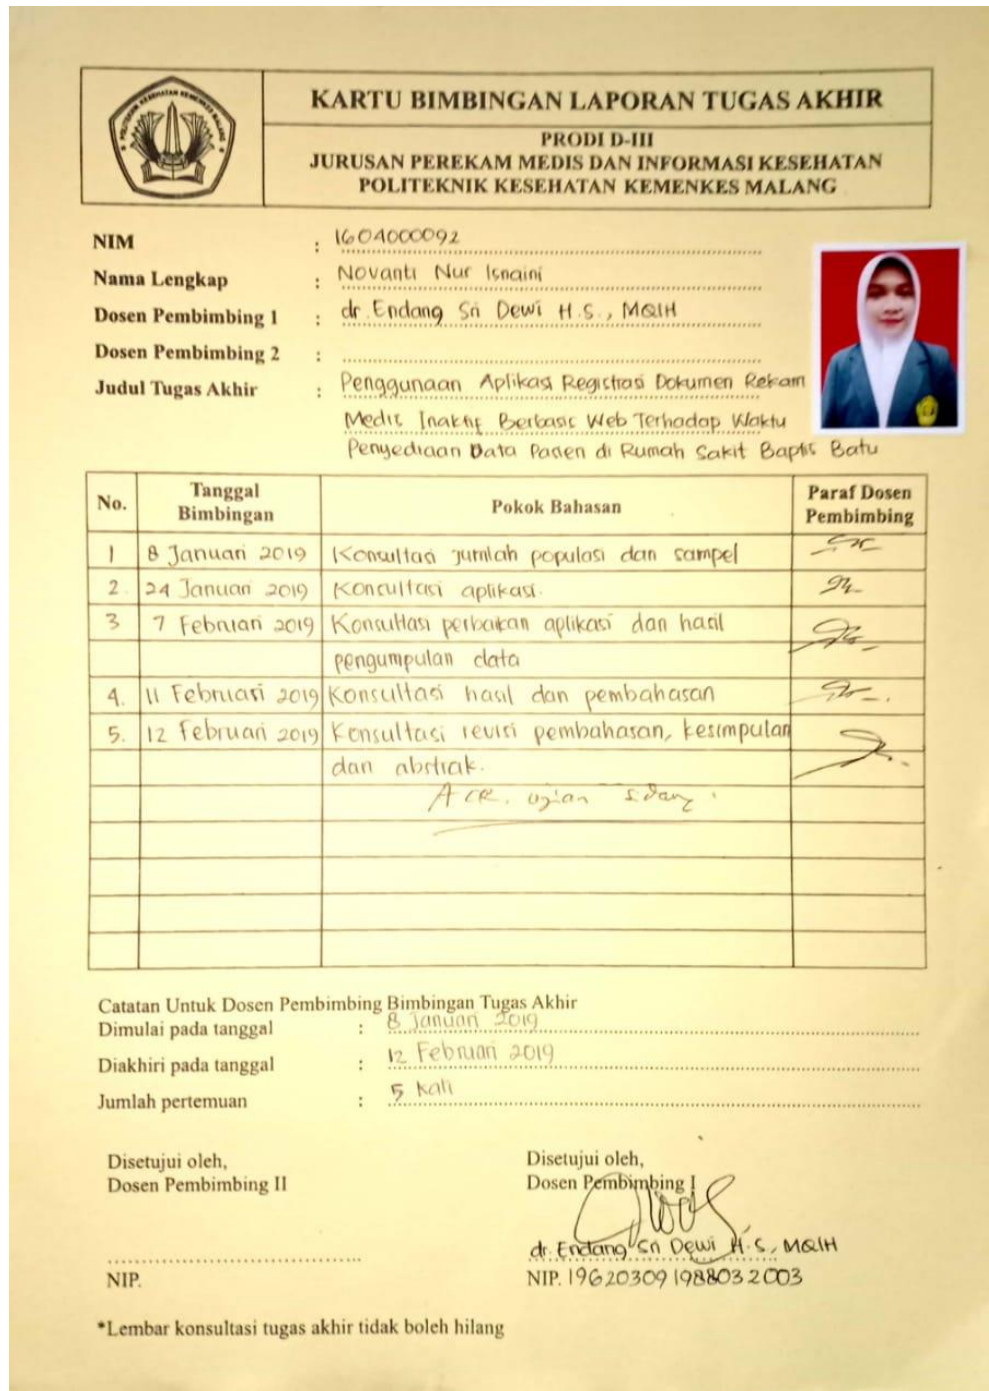 KARTU BIMBINGAN LAPORAN TUGAS AKHIR
PRODI D-III
JURUSAN PEREKAM MEDIS DAN INFORMASI KESEHATAN
POLITEKNIK KESEHATAN KEMENKES MALANG
POLITEKNIK KESEHATAN KEMENKES MALANG
NIM : 1604000092
Nama Lengkap : Novanti Nur Isnaini
Dosen Pembimbing 1 : dr. Endang Sri Dewi H.S., MQIH
Dosen Pembimbing 2 :
Judul Tugas Akhir : Penggunaan Aplikasi Registrasi Dokumen Rekam
Medis Inaktif Berbasis Web Terhadap Waktu
Penyediaan Data Pasien di Rumah Sakit Baptis Batu
No. Tanggal Bimbingan Pokok Bahasan Paraf Dosen Pembimbing
1 8 Januari 2019 Konsultasi jumlah populasi dan sampel
2. 24 Januari 2019 Konsultasi aplikasi.
3 7 Februari 2019 Konsultasi perbaikan aplikasi dan hasil
pengumpulan data
4. 11 Februari 2019 Konsultasi hasil dan pembahasan
5. 12 Februari 2019 Konsultasi revisi pembahasan, kesimpulan
dan abstrak.
ujian sidang
Catatan Untuk Dosen Pembimbing Bimbingan Tugas Akhir
Dimulai pada tanggal : 8 Januari 2019
Diakhiri pada tanggal : 12 Februari 2019
Jumlah pertemuan : 5 Kali
Disetujui oleh,
Dosen Pembimbing II
NIP.
Disetujui oleh,
Dosen Pembimbing I
dr. Endang Sri Dewi H.S, MQIH
NIP. 19620309 198803 2003
*Lembar konsultasi tugas akhir tidak boleh hilang